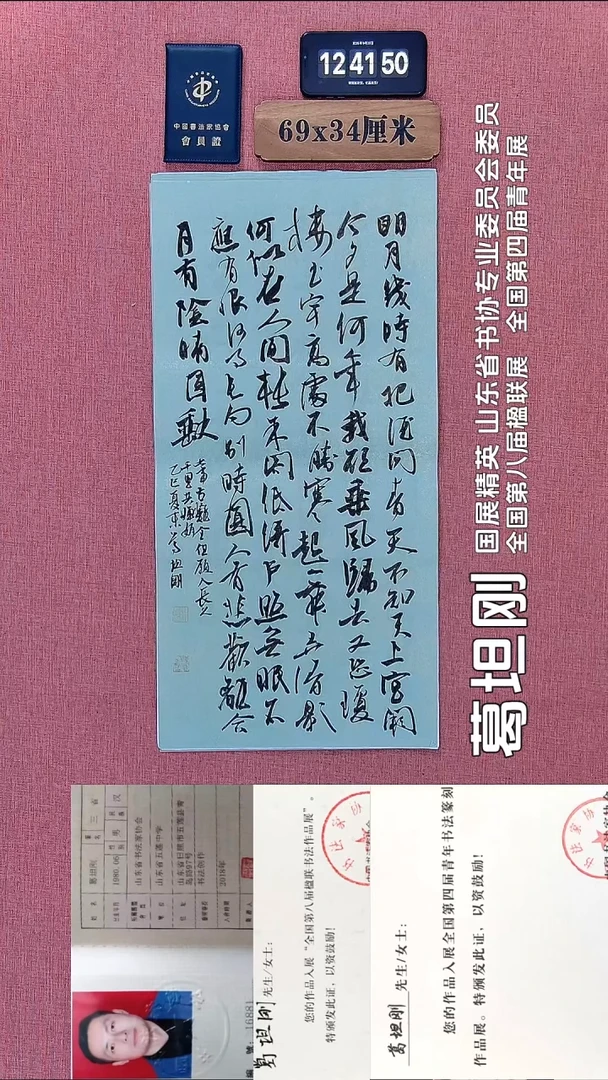 中國書法家協會
會員證
12 41 50
69x34厘米
明月幾時有把酒问青天不知天上宫阙
今夕是何年我欲乘風歸去又恐瓊
楼玉宇高處不勝寒起舞弄清影
何似在人间轉朱閣低绮户照无眠不
應有恨何事長向别時圆人有悲歡離合
月有陰晴圆缺
此事古難全但願人長久
千里共嬋娟
乙巳夏 葛坦刚
葛坦刚
国展精英 山东省书协专业委员会委员
全国第八届楹联展 全国第四届青年展
姓名 葛坦刚
1980.06
山东省书法家协会
山东省五莲中学
书法创作
2018年
16881
葛坦刚 先生/女士:
您的作品入展“全国第八届楹联书法作品展”。
特颁发此证，以资鼓励!
葛坦刚 先生/女士:
您的作品入展全国第四届青年书法篆刻
作品展。特颁发此证，以资鼓励!